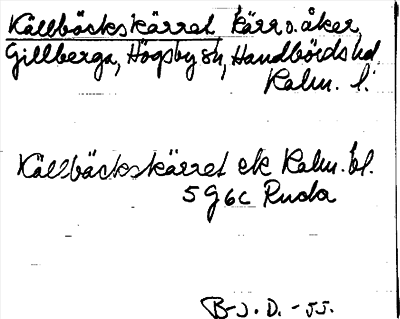 Källbäckskärret kärr o. åker,
Gillberga, Högsby sn, Handbörds hd
Kalm. l.
Källbäckskärret ek Kalm. bl.
5 G 6c Ruda
B-J. D. -55.